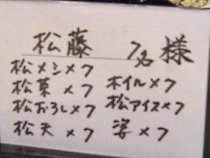 松藤 7名 様
松メシ×7 ホイル×7
松茶×7 松アイス×7
松おろし×7 姿×7
松天×7